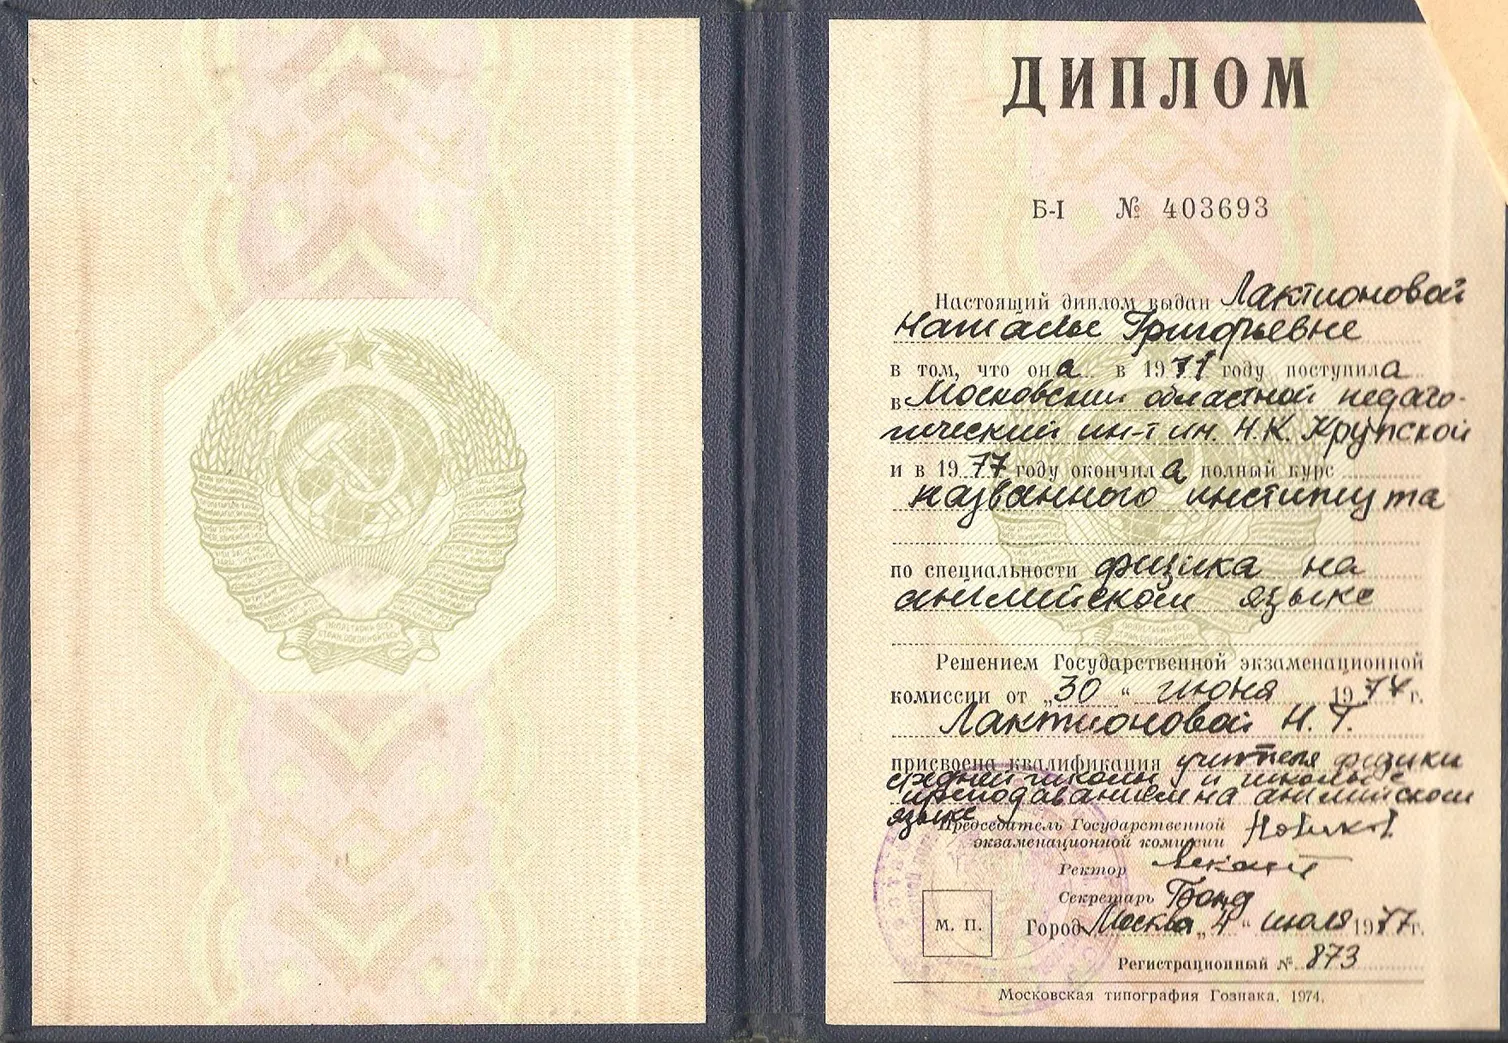 ПРОЛЕТАРИИ ВСЕХ
СТРАН, СОЕДИНЯЙТЕСЬ!
ДИПЛОМ
Б-I № 403693
Настоящий диплом выдан Лактионовой
Наталье Григорьевне
в том, что она в 1971 году поступила
в Московский областной педаго-
гический ин-т им. Н.К. Крупской
и в 1977 году окончила полный курс
названного института
по специальности физика на
английском языке
Решением Государственной экзаменационной
комиссии от „30“ июня 1977 г.
Лактионовой Н. Г.
присвоена квалификация учителя физики
средней школы и школы с
преподаванием на английском
языке
Председатель Государственной
экзаменационной комиссии
Ректор
Секретарь
М. П.
Город Москва „4“ июля 1977 г.
Регистрационный № 873
Московская типография Гознака. 1974.